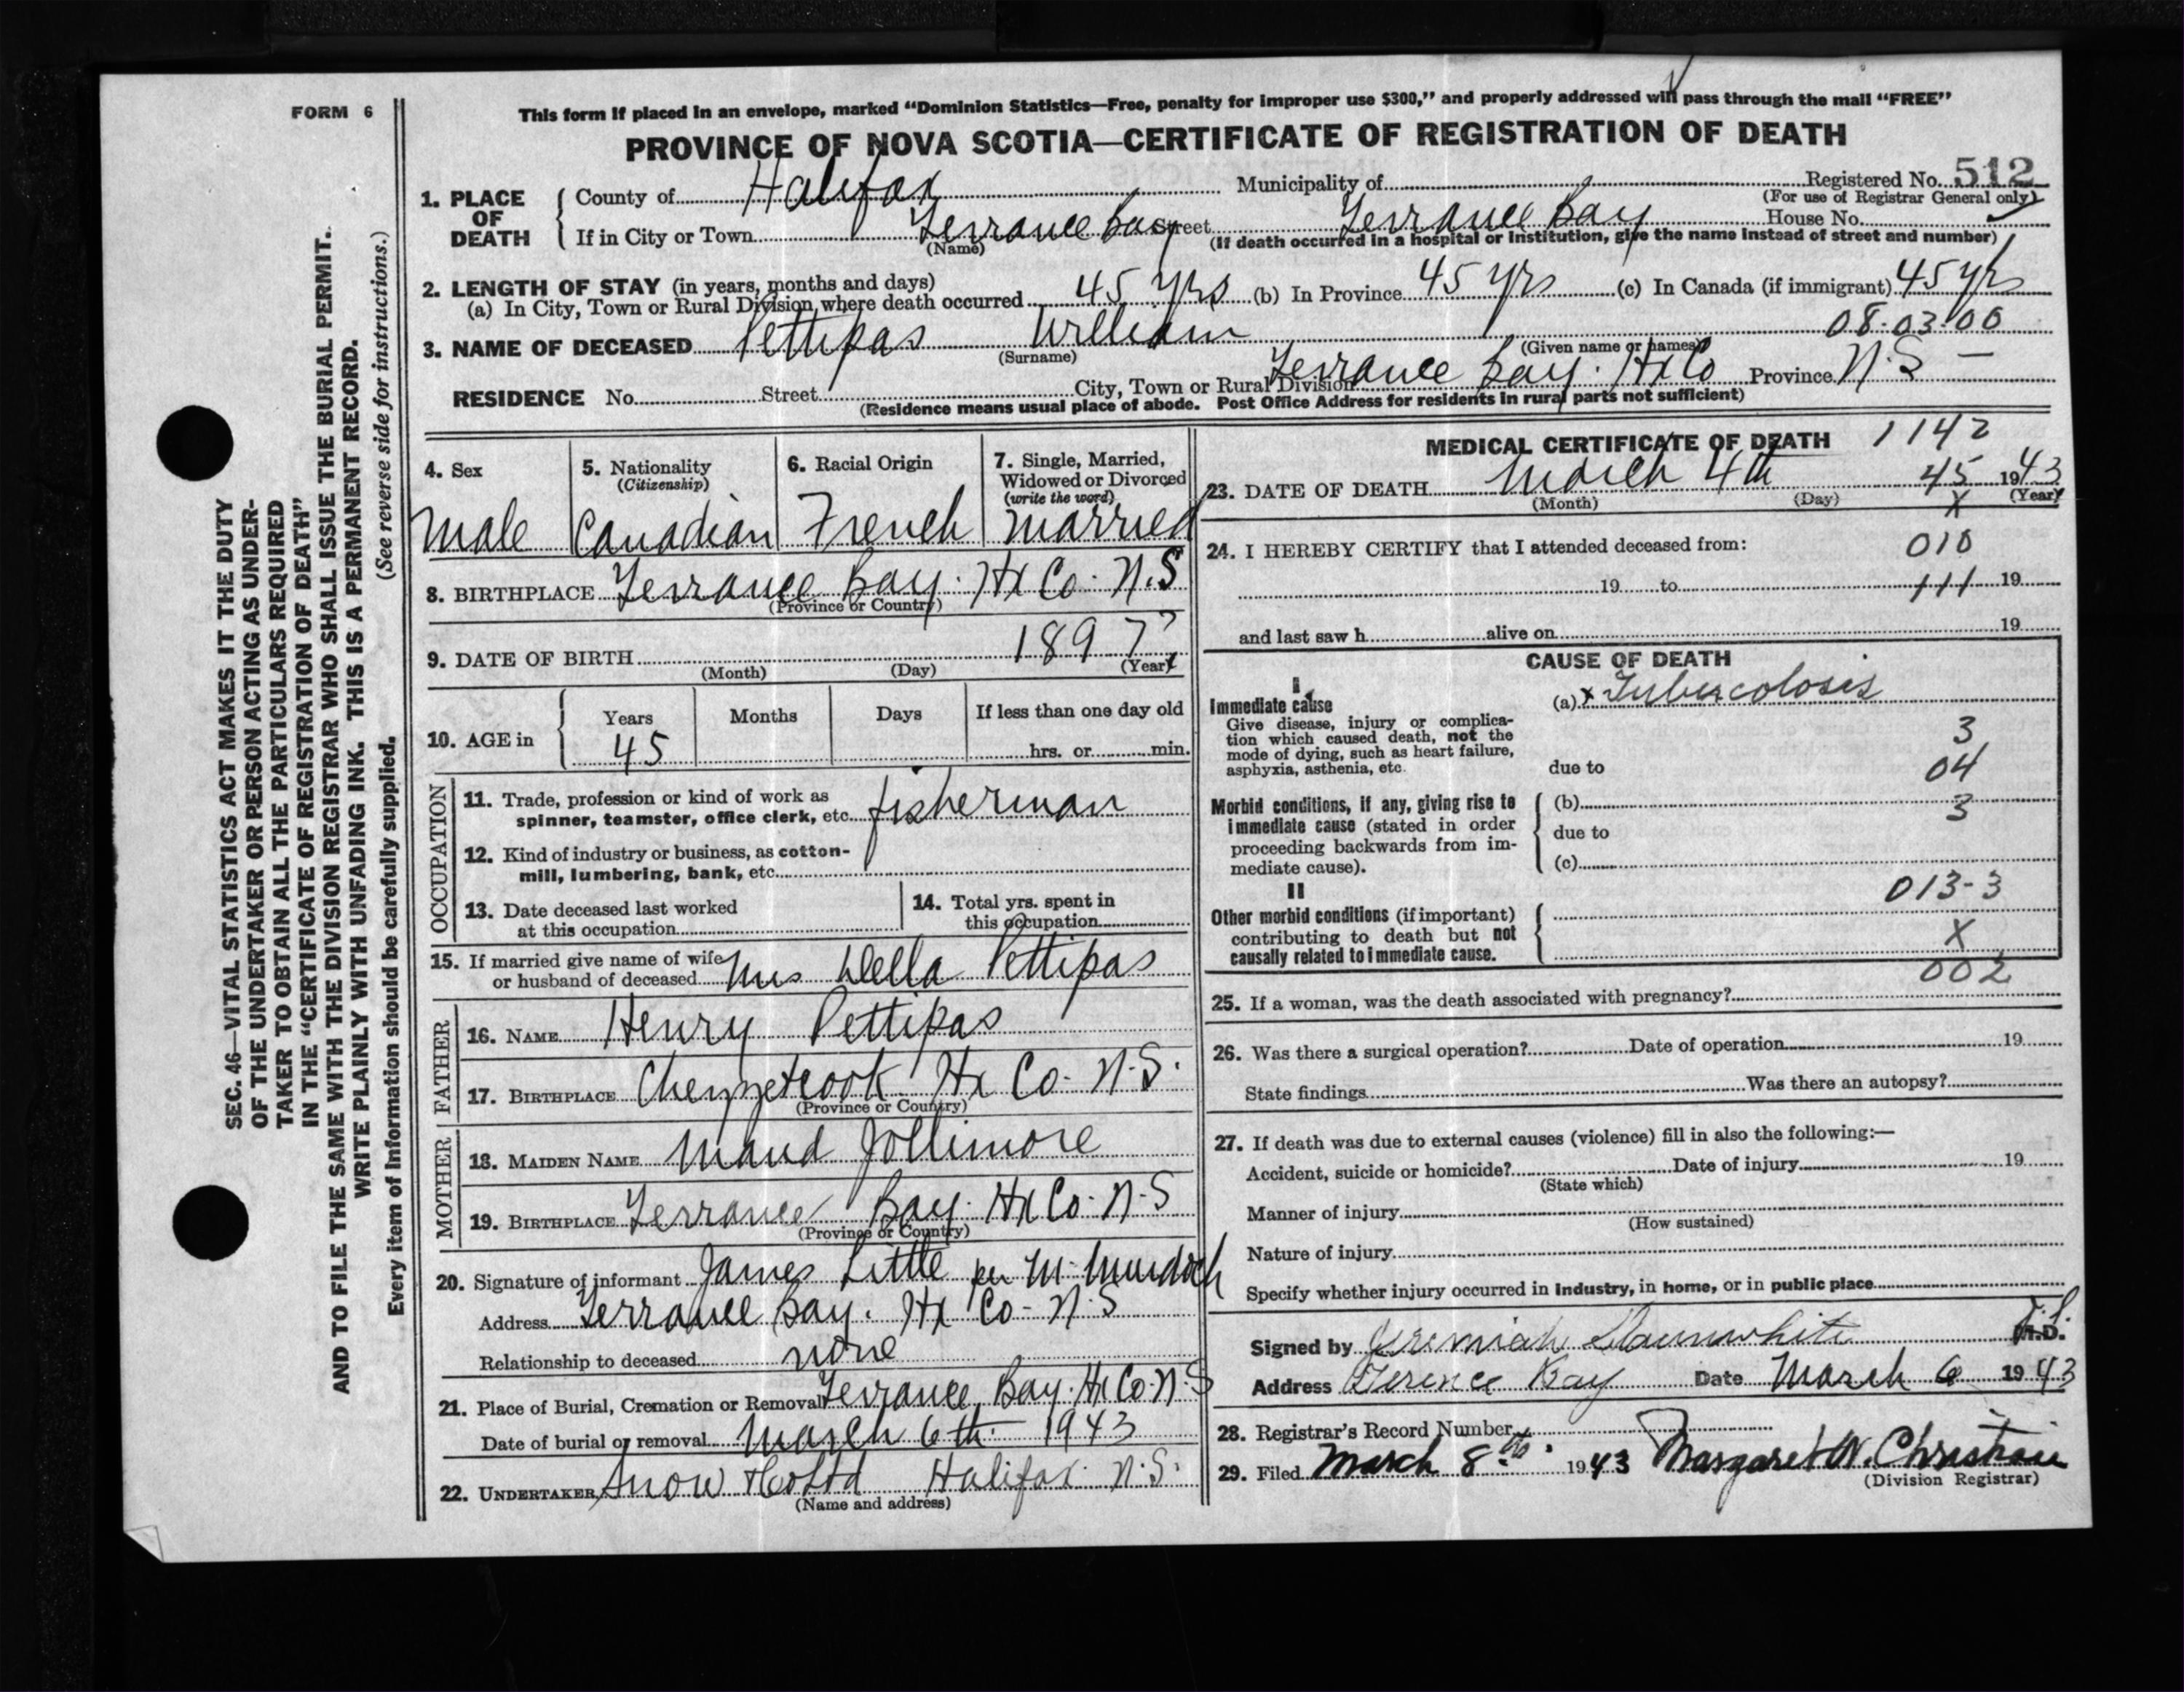 FORM 6
This form if placed in an envelope, marked “Dominion Statistics—Free, penalty for improper use $300,” and properly addressed will pass through the mail “FREE”
PROVINCE OF NOVA SCOTIA—CERTIFICATE OF REGISTRATION OF DEATH
1. PLACE OF DEATH
County of Halifax Municipality of Registered No. 512
(For use of Registrar General only)
If in City or Town Terrance Bay Street Terrance Bay House No.
(Name) (If death occurred in a hospital or institution, give the name instead of street and number)
2. LENGTH OF STAY (in years, months and days)
(a) In City, Town or Rural Division where death occurred 45 yrs (b) In Province 45 yrs (c) In Canada (if immigrant) 45 yrs
08-03-00
3. NAME OF DECEASED Pettipas William
(Surname) (Given name or names)
RESIDENCE No. Street City, Town or Rural Division Terrance Bay. Hx Co Province N.S —
(Residence means usual place of abode. Post Office Address for residents in rural parts not sufficient)
4. Sex
male
5. Nationality
(Citizenship)
Canadian
6. Racial Origin
French
7. Single, Married,
Widowed or Divorced
(write the word)
married
8. BIRTHPLACE Terrance Bay. Hx Co. N.S
(Province or Country)
9. DATE OF BIRTH 1897?
(Month) (Day) (Year)
10. AGE in
Years Months Days If less than one day old
45 hrs. or min.
OCCUPATION
11. Trade, profession or kind of work as
spinner, teamster, office clerk, etc. fisherman
12. Kind of industry or business, as cotton-
mill, lumbering, bank, etc.
13. Date deceased last worked
at this occupation
14. Total yrs. spent in
this occupation
15. If married give name of wife
or husband of deceased Mrs Della Pettipas
FATHER
16. NAME Henry Pettipas
17. BIRTHPLACE Chezzetcook Hx Co. N.S.
(Province or Country)
MOTHER
18. MAIDEN NAME Maud Jollimore
19. BIRTHPLACE Terrance Bay. Hx Co. N.S
(Province or Country)
20. Signature of informant James Little per M. Murdoch
Address Terrance Bay. Hx Co- N.S
Relationship to deceased none
21. Place of Burial, Cremation or Removal Terrance Bay. Hx Co. N.S
Date of burial or removal March 6th. 1943
22. UNDERTAKER Snow & Co Ltd Halifax N.S.
(Name and address)
MEDICAL CERTIFICATE OF DEATH 1142
23. DATE OF DEATH March 4th 45 1943
(Month) (Day) X (Year)
24. I HEREBY CERTIFY that I attended deceased from: 010
19 to 111 19
and last saw h alive on 19
CAUSE OF DEATH
I
Immediate cause
Give disease, injury or complica-
tion which caused death, not the
mode of dying, such as heart failure,
asphyxia, asthenia, etc.
(a) x Tubercolosis
3
due to 04
Morbid conditions, if any, giving rise to
immediate cause (stated in order
proceeding backwards from im-
mediate cause).
(b) 3
due to
(c)
II
013-3
Other morbid conditions (if important)
contributing to death but not
causally related to immediate cause.
X
002
25. If a woman, was the death associated with pregnancy?
26. Was there a surgical operation? Date of operation 19
State findings Was there an autopsy?
27. If death was due to external causes (violence) fill in also the following:—
Accident, suicide or homicide? Date of injury 19
(State which)
Manner of injury
(How sustained)
Nature of injury
Specify whether injury occurred in industry, in home, or in public place
Signed by Jeremiah Slaunwhite M.D.
Address Terence Bay Date March 6 1943
28. Registrar's Record Number
29. Filed March 8th. 1943 Margaret W. Christie
(Division Registrar)
SEC. 46—VITAL STATISTICS ACT MAKES IT THE DUTY
OF THE UNDERTAKER OR PERSON ACTING AS UNDER-
TAKER TO OBTAIN ALL THE PARTICULARS REQUIRED
IN THE “CERTIFICATE OF REGISTRATION OF DEATH”
AND TO FILE THE SAME WITH THE DIVISION REGISTRAR WHO SHALL ISSUE THE BURIAL PERMIT.
WRITE PLAINLY WITH UNFADING INK. THIS IS A PERMANENT RECORD.
(See reverse side for instructions.)
Every item of Information should be carefully supplied.